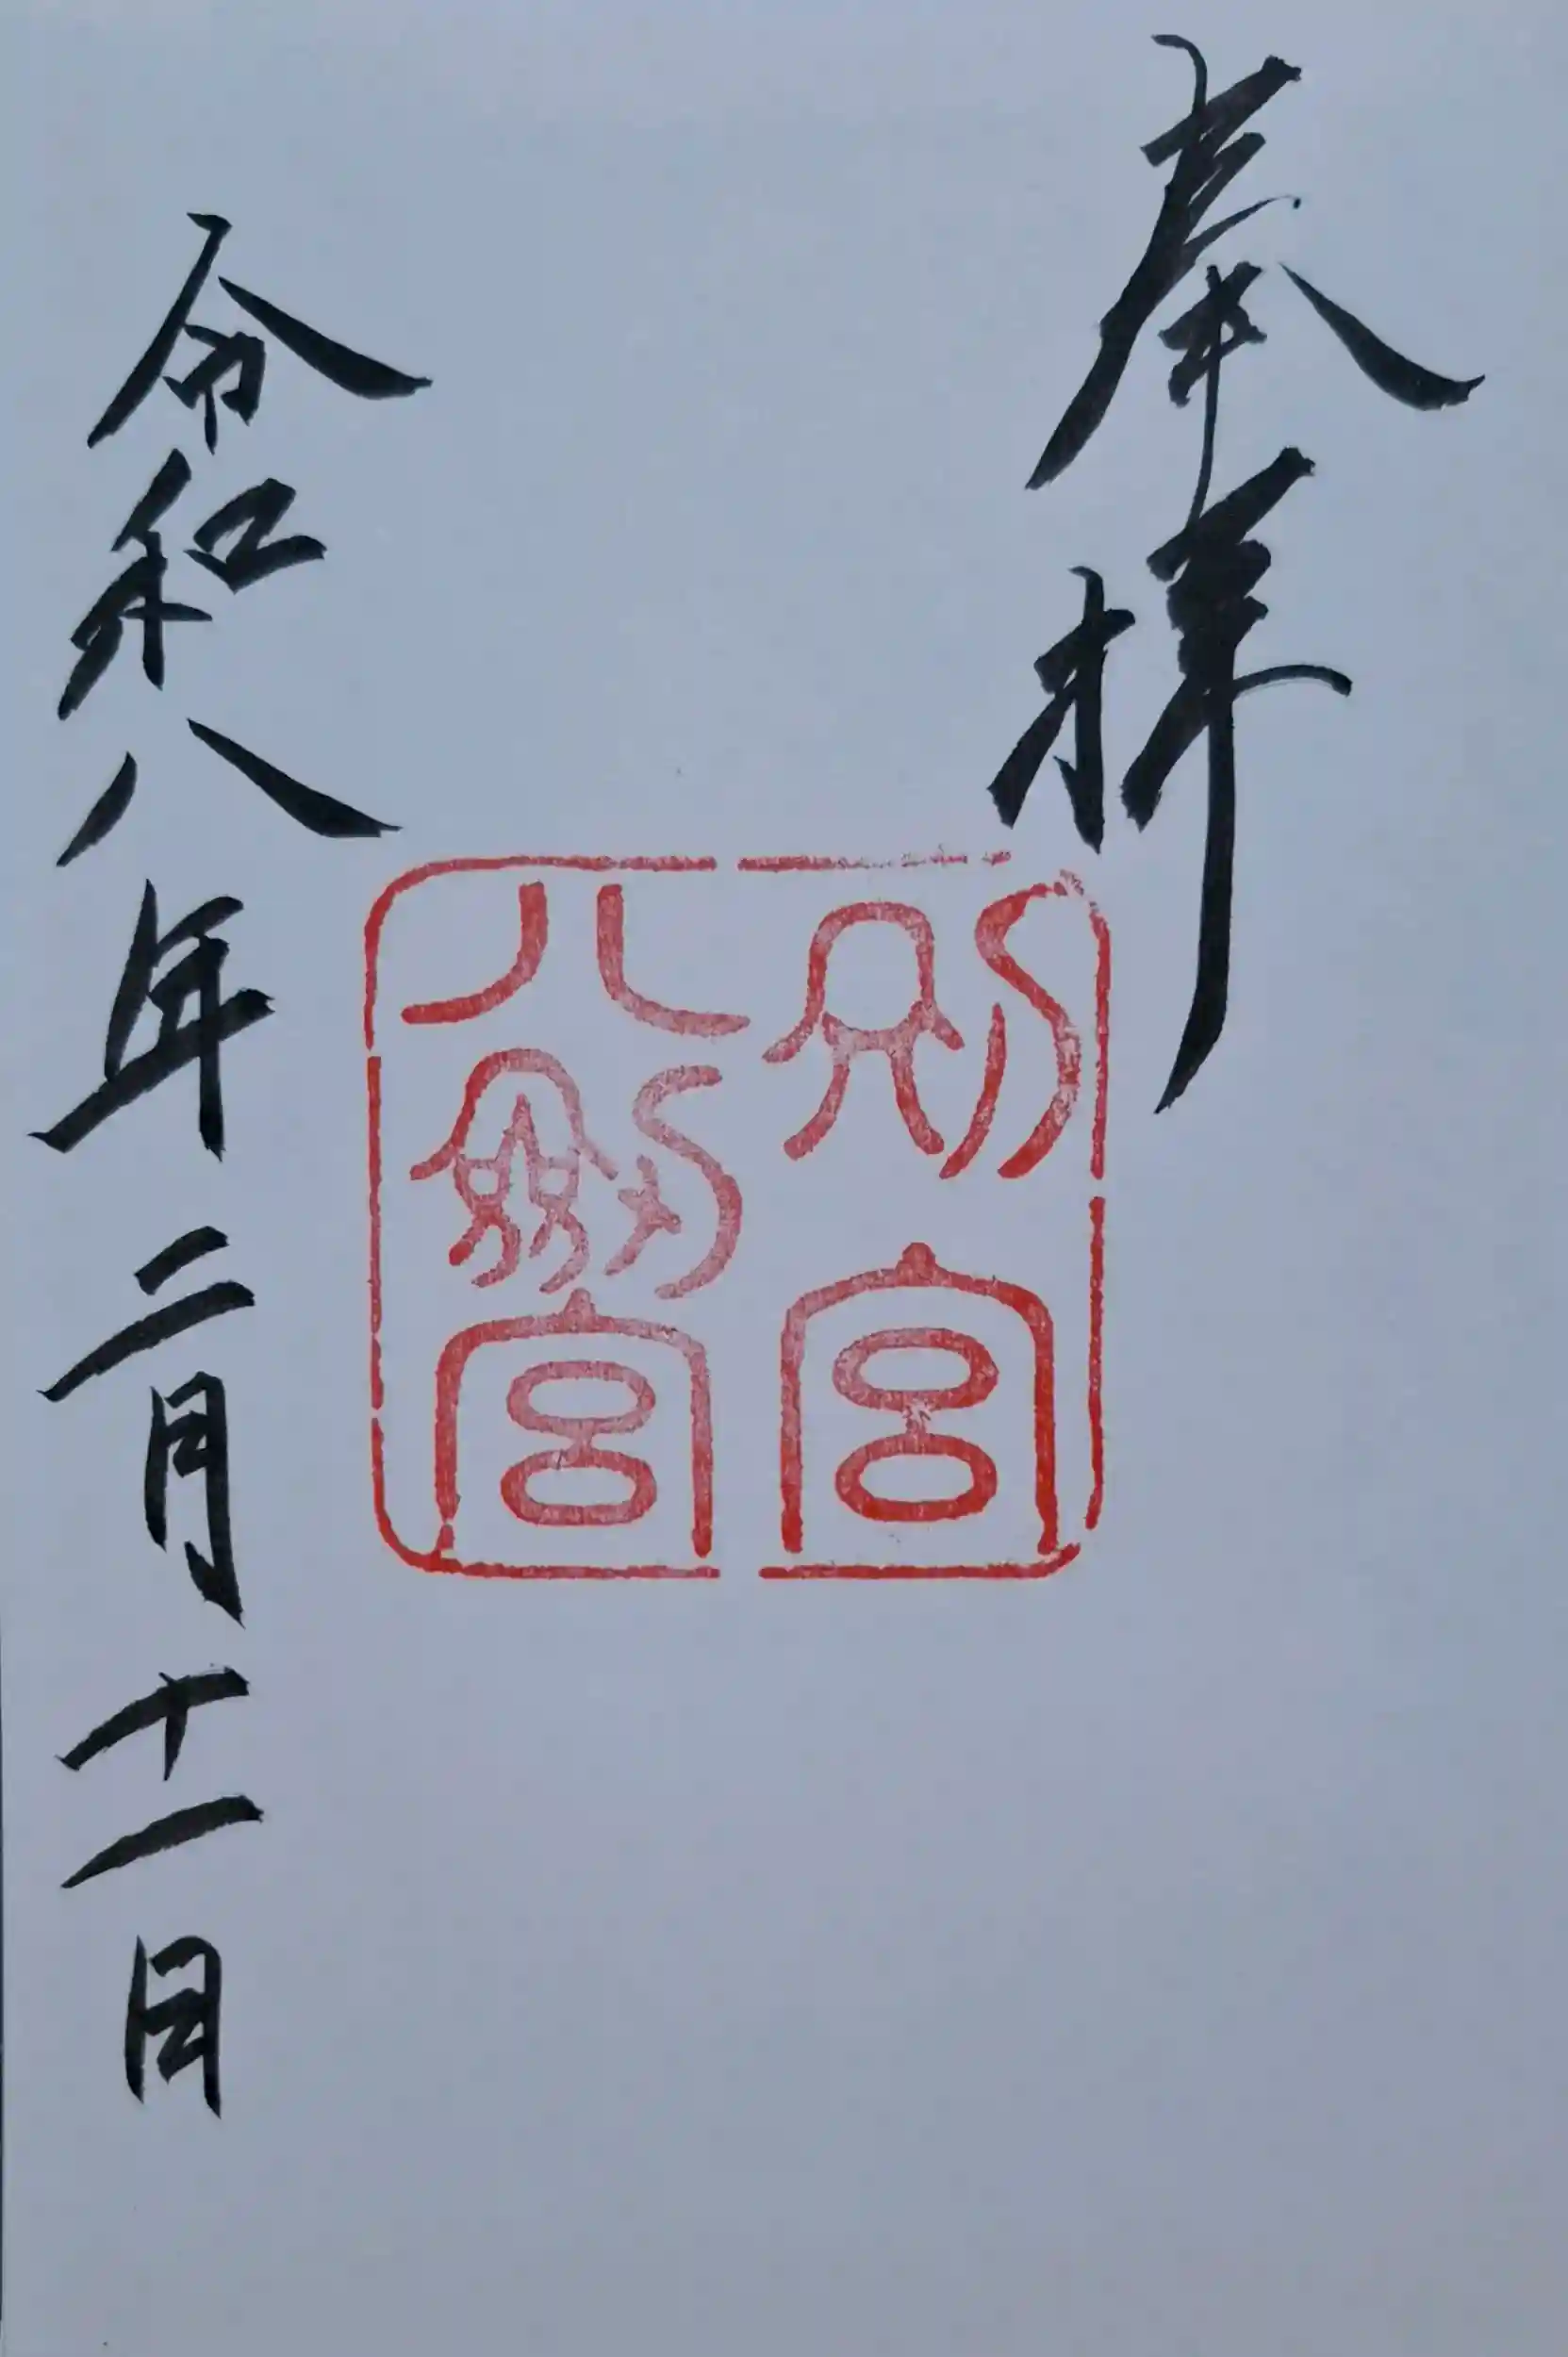 奉拝
別宮
八劔宮
令和八年二月十一日